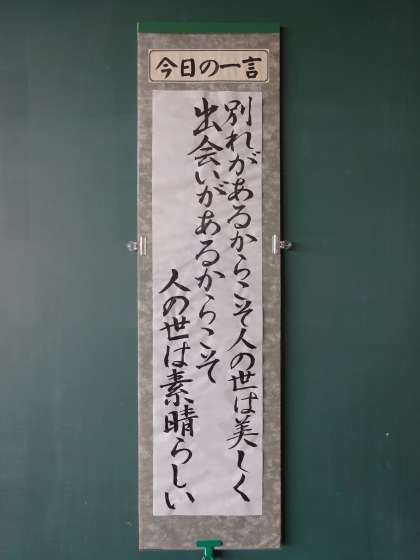 今日の一言
別れがあるからこそ人の世は美しく
出会いがあるからこそ
人の世は素晴らしい